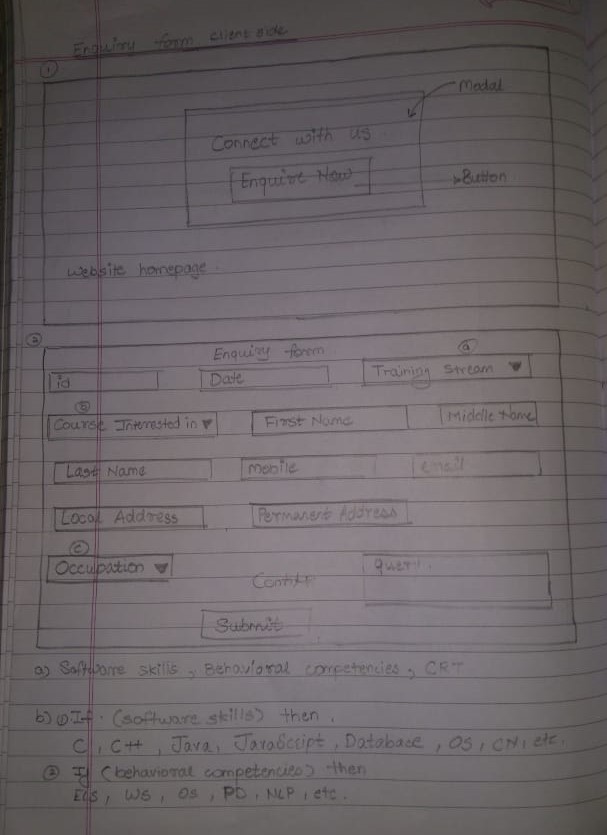 Enquiry form client side
①
Modal
Connect with us
Enquire Now
Button
Website homepage.
②
Enquiry form
ⓐ
id
Date
Training Stream
ⓑ
Course Interested in
First Name
Middle Name
Last Name
Mobile
email
Local Address
Permanent Address
ⓒ
Occupation
query
Submit
a) Software skills, Behavioral competencies, CRT
b) ① If (software skills) then,
C, C++, Java, JavaScript, Database, OS, CN, etc.
② If (behavioral competencies) then
WS, OS, PD, NLP, etc.